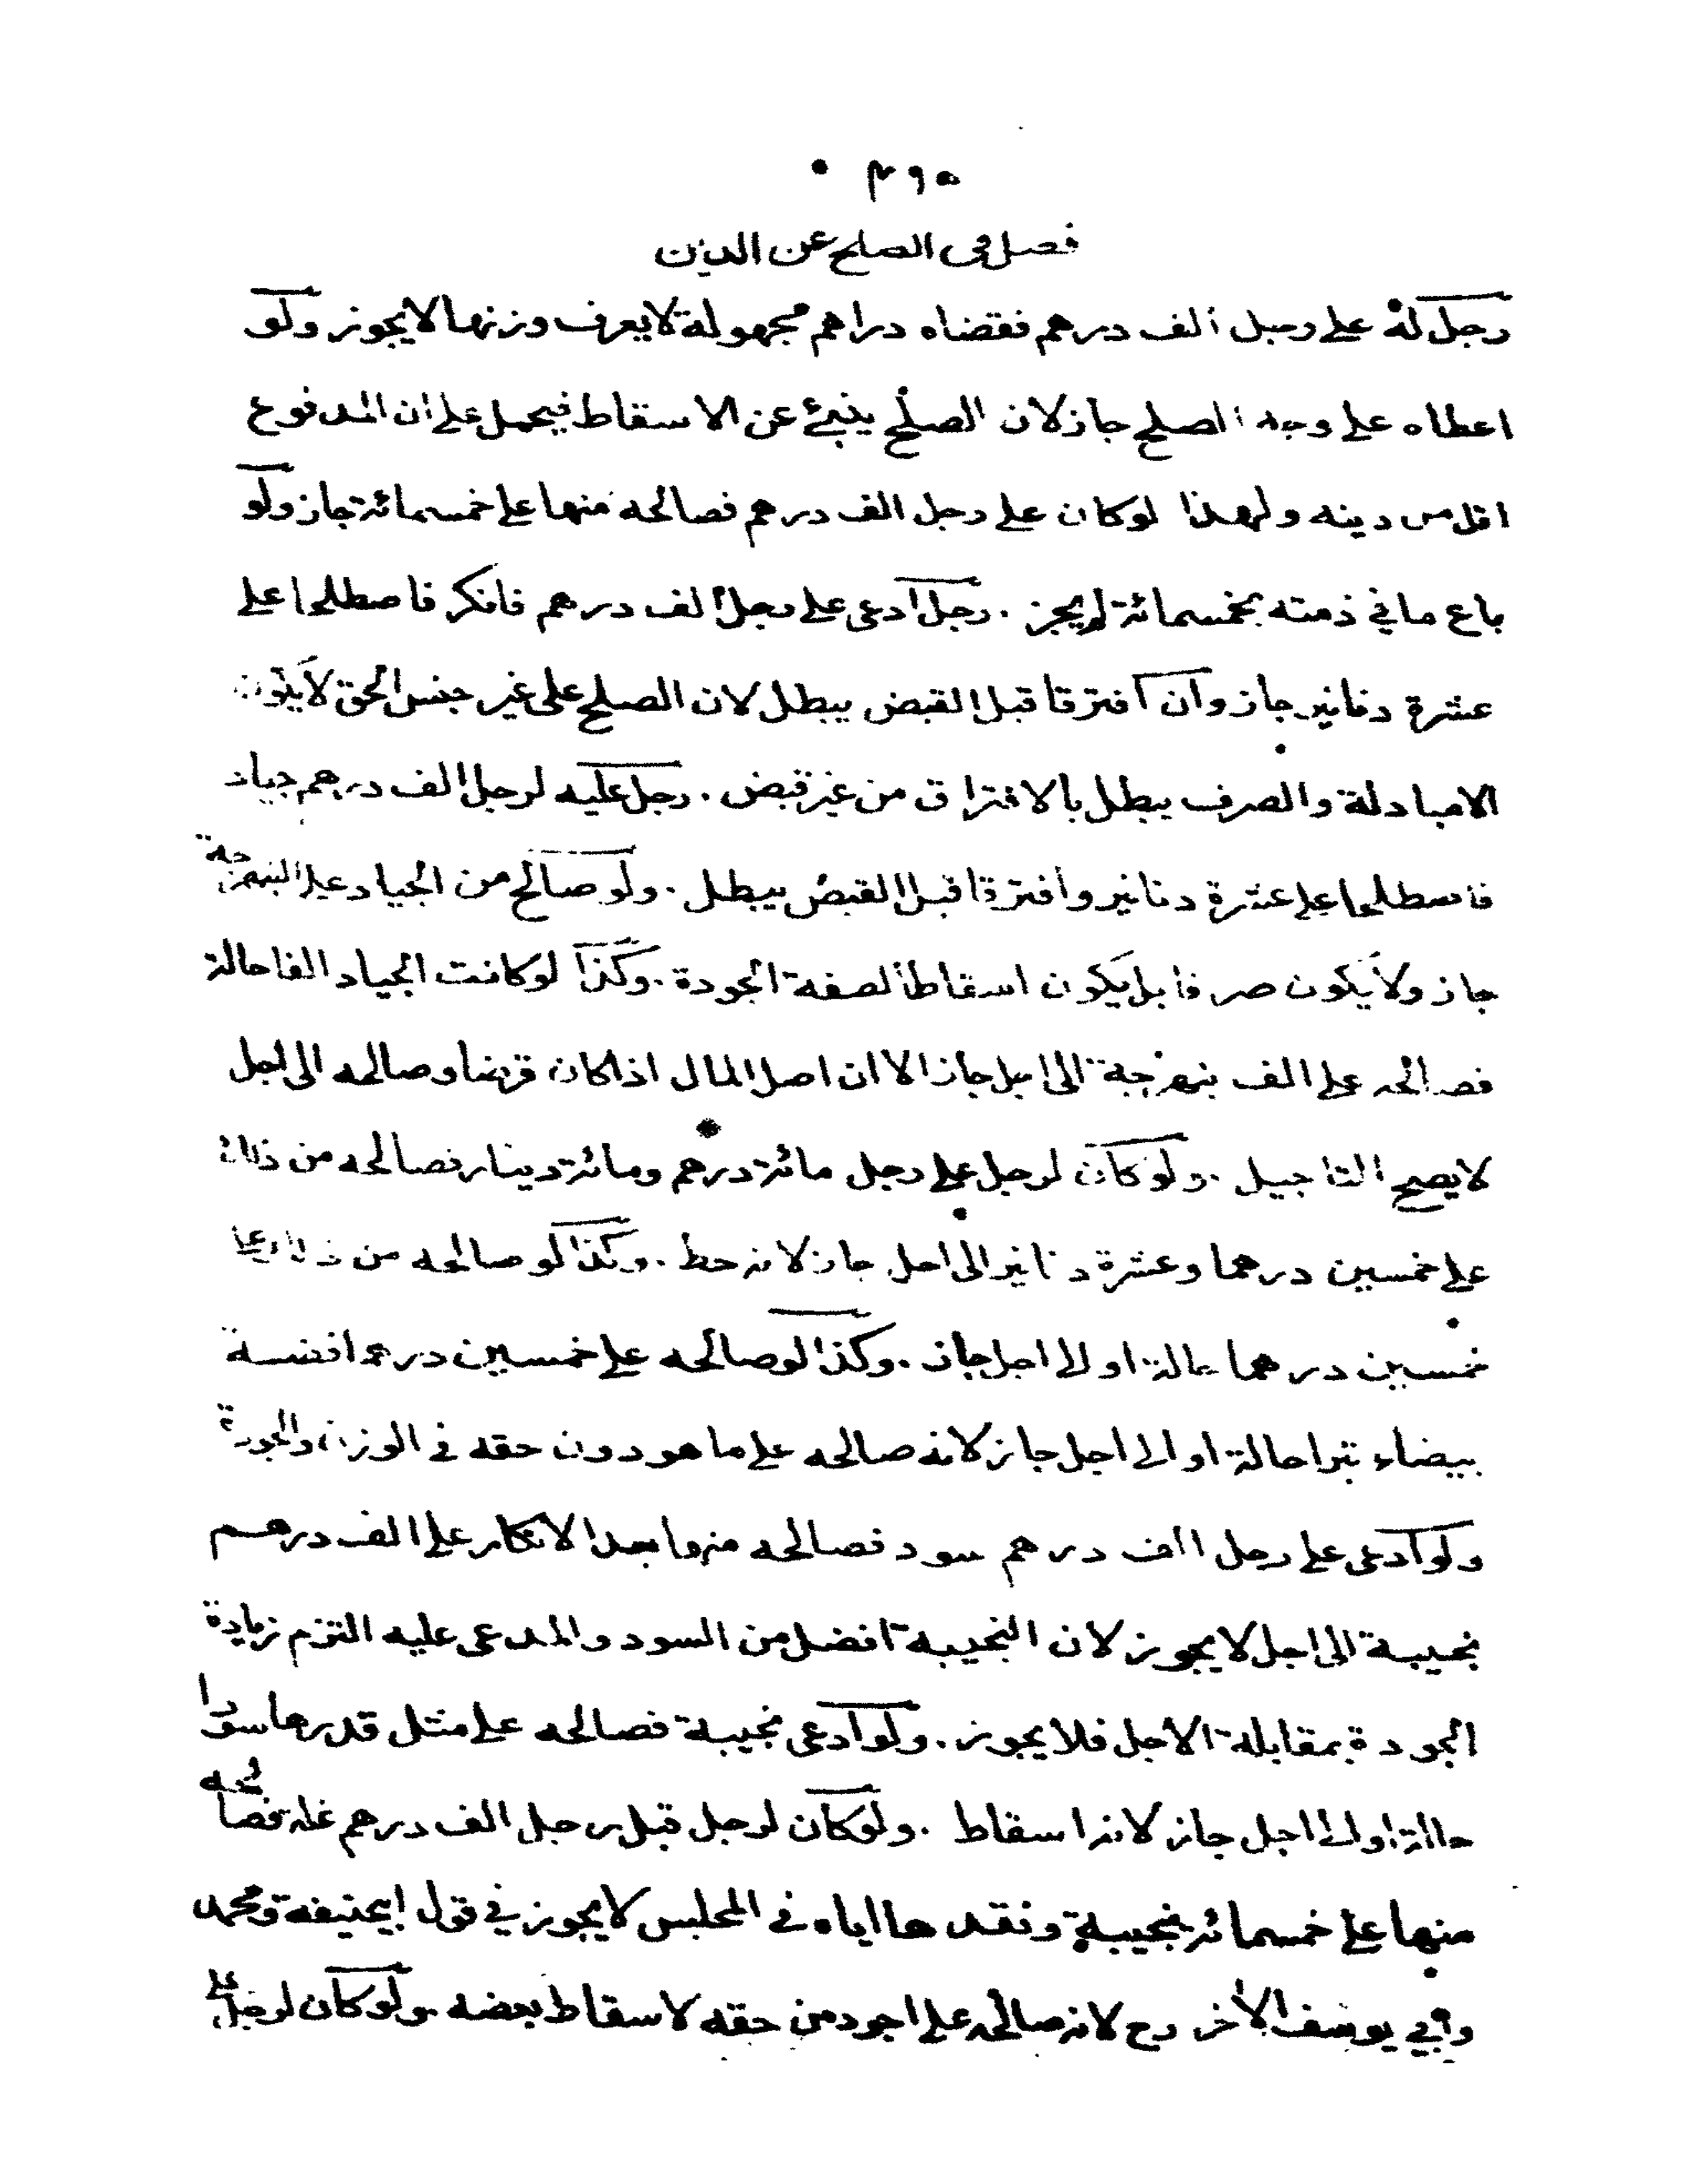 ٣٩٥
فصل فى الصلح عن الدين
رجل له على رجل الف درهم فقضاه دراهم مجهولة لا يعرف وزنها لا يجوز ولو
اعطاه على وجه الصلح جاز لان الصلح ينبئ عن الاسقاط فيحمل على ان المدفوع
اقل من دينه ولهذا لو كان على رجل الف درهم فصالحه منها على خمسمائة جاز ولو
باع ما في ذمته بخمسمائة لم يجز . رجل ادعى على رجل الف درهم فانكر فاصطلحا على
عشرة دنانير جاز وان افترقا قبل القبض يبطل لان الصلح على غير جنس الحق لا يكون
الا مبادلة والصرف يبطل بالافتراق من غير قبض . رجل عليه لرجل الف درهم جياد
فاصطلحا على عشرة دنانير وافترقا قبل القبض يبطل . ولو صالح من الجياد على النبهرجة
جاز ولا يكون صرفا بل يكون اسقاطا لصفة الجودة . وكذا لو كانت الجياد الفا حالة
فصالحه على الف نبهرجة الى اجل جاز الا ان اصل المال اذا كان قرضا وصالحه الى اجل
لا يصح التاجيل . ولو كان لرجل على رجل مائة درهم ومائة دينار فصالحه من ذلك
على خمسين درهما وعشرة دنانير الى اجل جاز لانه حط . وكذا لو صالحه من ذلك على
خمسين درهما حالة او الى اجل جاز . وكذا لو صالحه على خمسين درهما فضة
بيضاء تبرا حالة او الى اجل جاز لانه صالحه على ما هو دون حقه في الوزن والجودة
ولو ادعى على رجل الف درهم سود فصالحه منها بعد الانكار على الف درهم
نجيبة الى اجل لا يجوز لان النجيبة افضل من السود والمدعى عليه التزم زيادة
الجودة بمقابلة الاجل فلا يجوز . ولو ادعى نجيبة فصالحه على مثل قدرها سودا
حالة او الى اجل جاز لانه اسقاط . ولو كان لرجل قبل رجل الف درهم غلة فصالحه
منها على خمسمائة نجيبة ونقدها اياه في المجلس لا يجوز في قول ابيحنيفة ومحمد
وابي يوسف الاخر رح لانه صالحه على اجود من حقه لا سقاط بعضه . ولو كان لرجل على